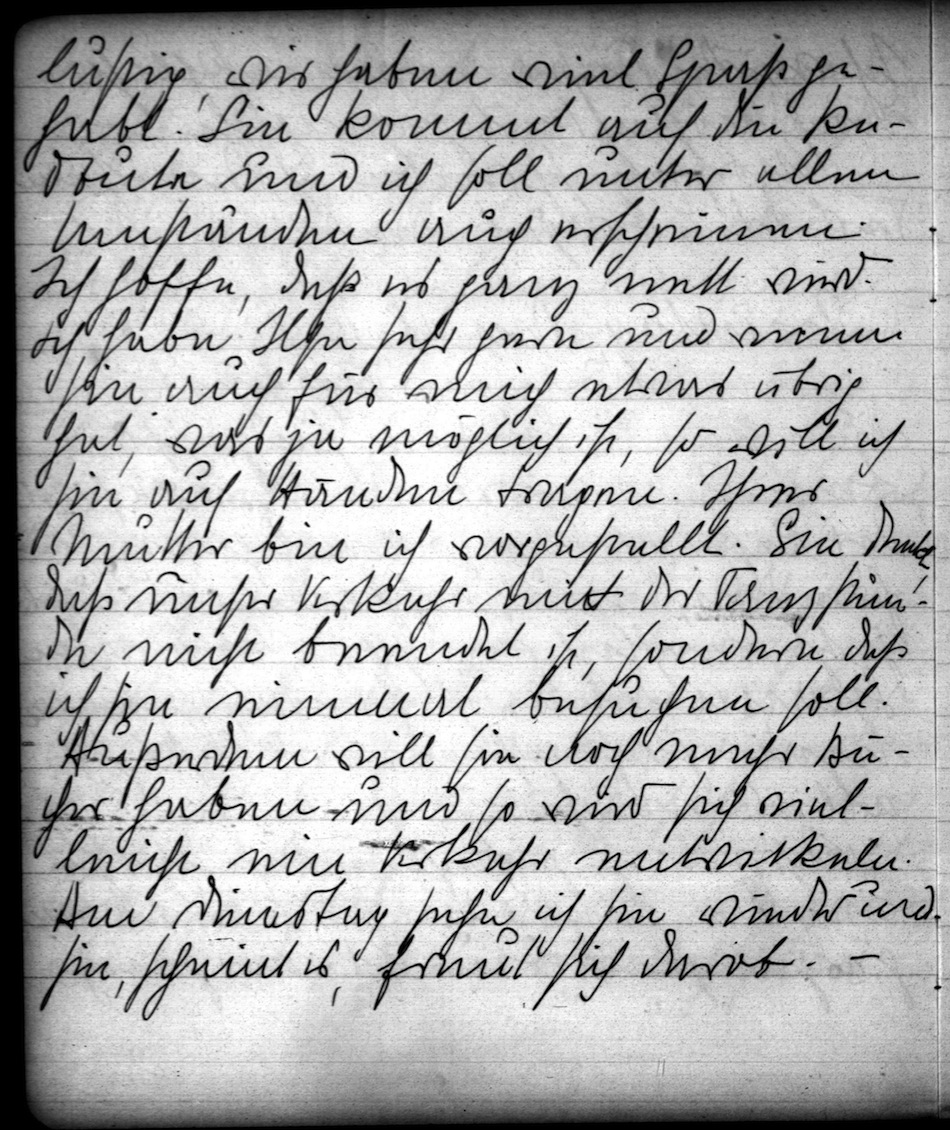 lustig, wir haben viel Spaß ge-
habt. Sie kommt auf die Re-
doute und ich soll unter allen
Umständen auch erscheinen.
Ich hoffe, daß es ganz nett wird.
Ich habe Ilse sehr gern und wenn
sie auch für mich etwas übrig
hat, was ja möglich ist, so will ich
sie auf Händen tragen. Ihrer
Mutter bin ich vorgestellt. Sie denkt,
daß unser Verkehr mit der Tanzstun-
de nicht beendet ist, sondern daß
ich sie einmal besuchen soll.
Außerdem will sie noch mehr Bü-
cher haben und so wird sich viel-
leicht ein Verkehr entwickeln.
Am Dienstag sehe ich sie wieder und
sie, scheint es, freut sich darob. –